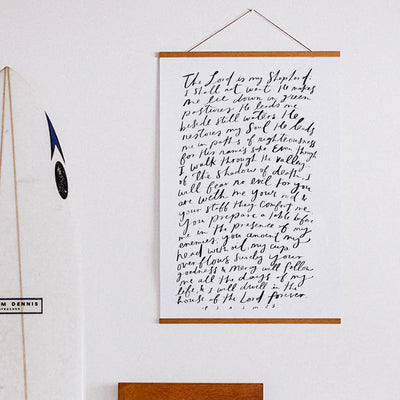 The Lord is my Shepherd.
I shall not want. He makes
me lie down in green
pastures. He leads me
beside still waters. He
restores my Soul. He leads
me in paths of righteousness
for His name's sake. Even though
I walk through the valley
of the shadow of death, I
will fear no evil for you
are with me your rod &
your staff they comfort me.
You prepare a table before
me in the presence of my
enemies; you anoint my
head with oil; my cup
overflows. Surely your
goodness & mercy will follow
me all the days of my
life; & I will dwell in the
house of the Lord forever
M DENNIS